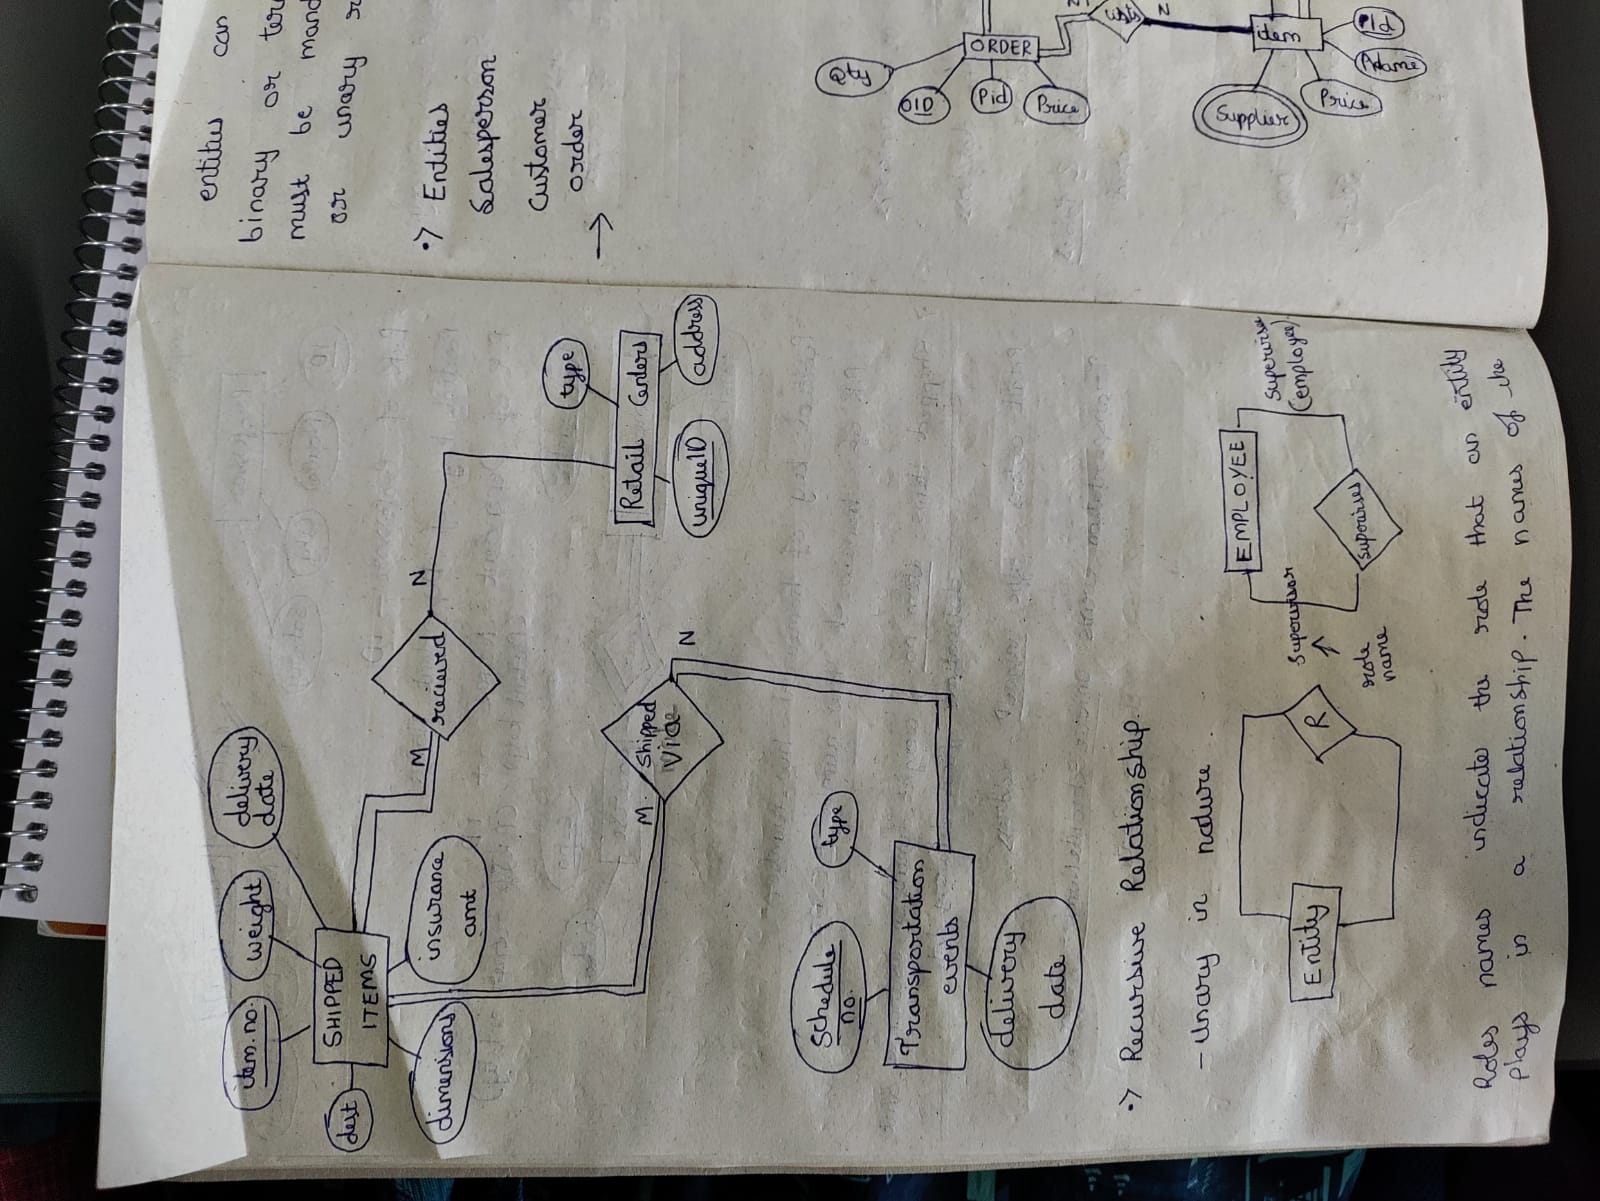 item.no.
weight
delivery
date
dest
SHIPPED
ITEMS
dimensions
insurance
amt
M
recieved
N
type
Retail Centers
uniqueID
address
M
Shipped
via
N
Schedule
no.
type
Transportation
events
delivery
date
•> Recursive Relationship.
- Unary in nature.
Entity
R
EMPLOYEE
Supervisor
role
name
Supervisee
(employee).
Roles names indicate the role that an entity
plays in a relationship. The names of the
entities can
binary or
must be
or unary
•> Entities
Salesperson
Customer
order
→
Qty
OID
Pid
Price
ORDER
N
Supplier
item
Price
N